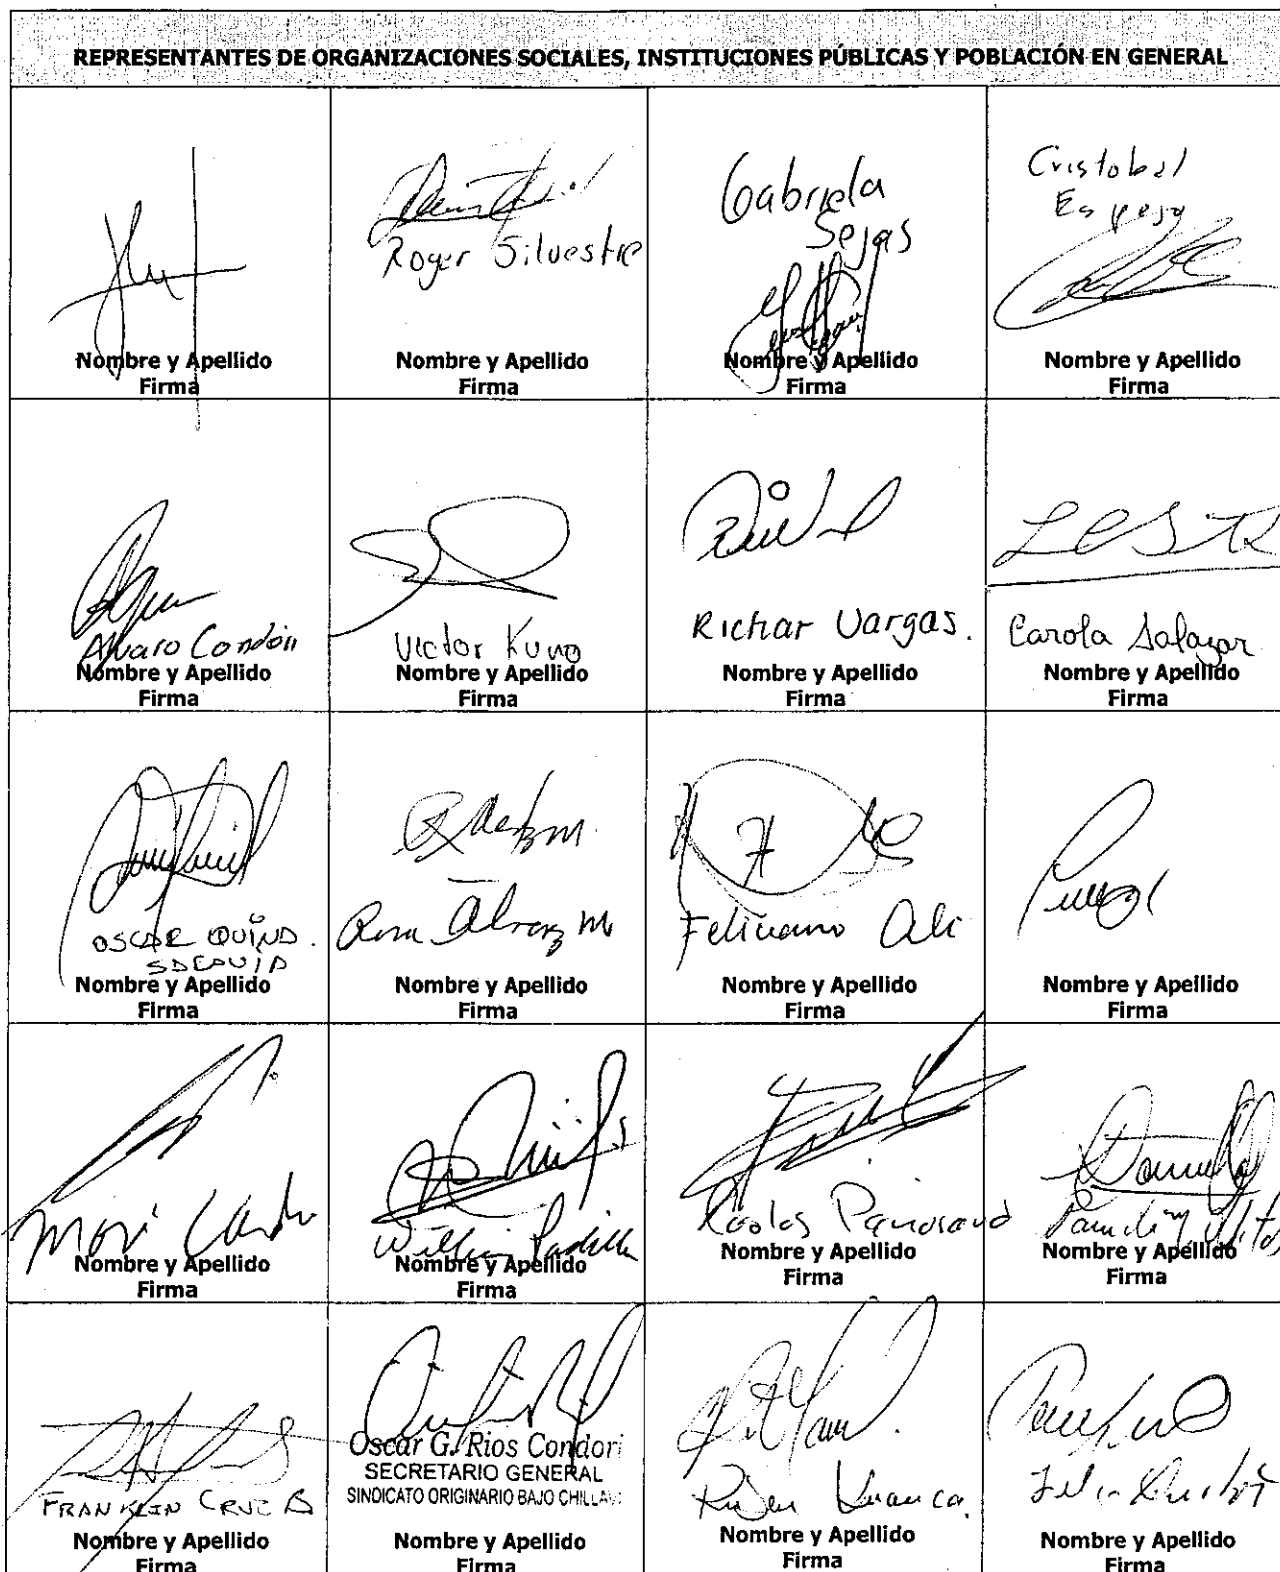 REPRESENTANTES DE ORGANIZACIONES SOCIALES, INSTITUCIONES PÚBLICAS Y POBLACIÓN EN GENERAL
Nombre y Apellido
Firma
Roger Silvestre
Nombre y Apellido
Firma
Gabriela
Sejas
Nombre y Apellido
Firma
Cristobal
Espejo
Nombre y Apellido
Firma
Alvaro Condori
Nombre y Apellido
Firma
Victor Kuno
Nombre y Apellido
Firma
Richar Vargas.
Nombre y Apellido
Firma
Carola Salazar
Nombre y Apellido
Firma
OSCAR
Nombre y Apellido
Firma
Nombre y Apellido
Firma
Feliciano Ali
Nombre y Apellido
Firma
Nombre y Apellido
Firma
Nombre y Apellido
Firma
William Padilla
Nombre y Apellido
Firma
Nombre y Apellido
Firma
Nombre y Apellido
Firma
FRANKLIN CRUZ B
Nombre y Apellido
Firma
Oscar G. Rios Condori
SECRETARIO GENERAL
SINDICATO ORIGINARIO BAJO CHILLAVI
Nombre y Apellido
Firma
Nombre y Apellido
Firma
Nombre y Apellido
Firma